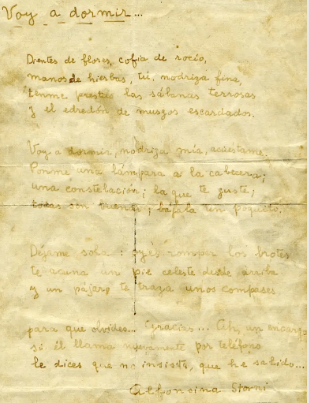 Voy a dormir...
Dientes de flores, cofia de rocío,
manos de hierbas, tú, nodriza fina,
tenme prestas las sábanas terrosas
y el edredón de musgos escardados.
Voy a dormir, nodriza mía, acuéstame.
Ponme una lámpara a la cabecera;
una constelación; la que te guste;
todas son buenas; bájala un poquito.
Déjame sola: oyes romper los brotes
te acuna un pie celeste desde arriba
y un pájaro te traza unos compases
para que olvides... Gracias... Ah, un encargo
si él llama nuevamente por teléfono
le dices que no insista, que he salido...
Alfonsina Storni